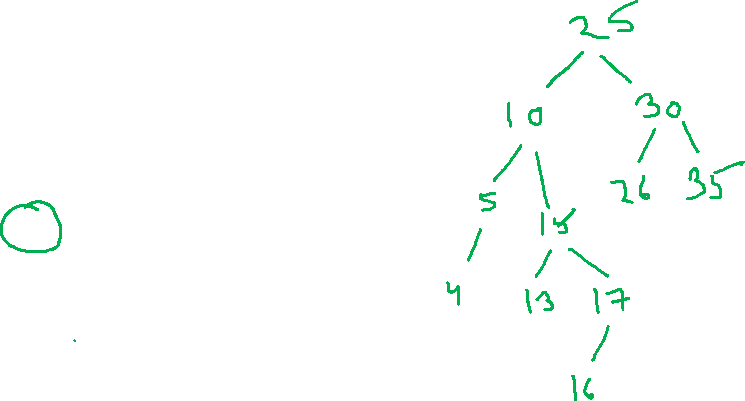 25
10 30
5 15 26 35
4 13 17
16